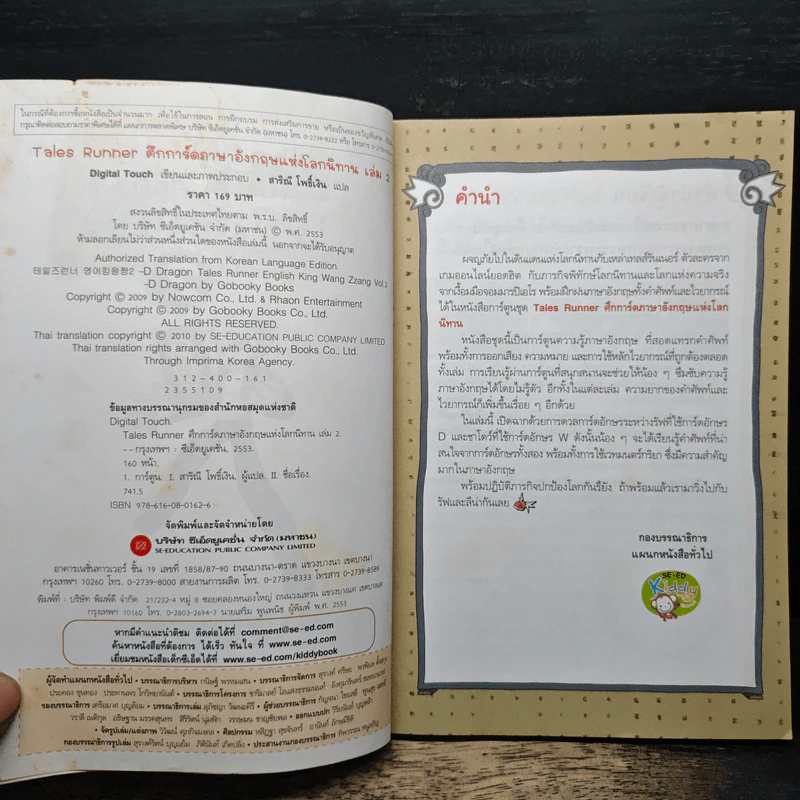 ในกรณีที่ต้องการซื้อหนังสือเป็นจำนวนมาก เพื่อใช้ในการสอน การฝึกอบรม การส่งเสริมการขาย หรือเป็นของขวัญพิเศษ
กรุณาติดต่อสอบถามราคาพิเศษได้ที่ แผนกการตลาดพิเศษ บริษัท ซีเอ็ดยูเคชั่น จำกัด (มหาชน) โทร. 0-2739-8222 หรือ โทรสาร 0-2739-
Tales Runner ศึกการ์ดภาษาอังกฤษแห่งโลกนิทาน เล่ม 2
Digital Touch เขียนและภาพประกอบ • สาริณี โพธิ์เงิน แปล
ราคา 169 บาท
สงวนลิขสิทธิ์ในประเทศไทยตาม พ.ร.บ. ลิขสิทธิ์
โดย บริษัท ซีเอ็ดยูเคชั่น จำกัด (มหาชน) © พ.ศ. 2553
ห้ามลอกเลียนไม่ว่าส่วนหนึ่งส่วนใดของหนังสือเล่มนี้ นอกจากจะได้รับอนุญาต
Authorized Translation from Korean Language Edition.
테일즈런너 영어킹왕짱2 -D Dragon Tales Runner English King Wang Zzang Vol.2
-D Dragon by Gobooky Books
Copyright © 2009 by Nowcom Co., Ltd. & Rhaon Entertainment
Copyright © 2009 by Gobooky Books Co., Ltd.
ALL RIGHTS RESERVED.
Thai translation copyright © 2010 by SE-EDUCATION PUBLIC COMPANY LIMITED
Thai translation rights arranged with Gobooky Books Co., Ltd.
Through Imprima Korea Agency.
312-400-161
2355109
ข้อมูลทางบรรณานุกรมของสำนักหอสมุดแห่งชาติ
Digital Touch.
Tales Runner ศึกการ์ดภาษาอังกฤษแห่งโลกนิทาน เล่ม 2.
--กรุงเทพฯ : ซีเอ็ดยูเคชั่น, 2553.
160 หน้า.
1. การ์ตูน. I. สาริณี โพธิ์เงิน, ผู้แปล. II. ชื่อเรื่อง.
741.5
ISBN 978-616-08-0162-6
จัดพิมพ์และจัดจำหน่ายโดย
บริษัท ซีเอ็ดยูเคชั่น จำกัด (มหาชน)
SE-EDUCATION PUBLIC COMPANY LIMITED
อาคารเนชั่นทาวเวอร์ ชั้น 19 เลขที่ 1858/87-90 ถนนบางนา-ตราด แขวงบางนา เขตบางนา
กรุงเทพฯ 10260 โทร. 0-2739-8000 สายงานการผลิต โทร. 0-2739-8333 โทรสาร 0-2739-8589
พิมพ์ที่ : บริษัท พิมพ์ดี จำกัด 21/232-4 หมู่ 8 ซอยคลองหนองใหญ่ ถนนวงแหวน แขวงบางแค เขตบางแค
กรุงเทพฯ 10160 โทร. 0-2803-2694-7 นายเสริม พูนพนิช ผู้พิมพ์ พ.ศ. 2553
หากมีคำแนะนำติชม ติดต่อได้ที่ comment@se-ed.com
ค้นหาหนังสือที่ต้องการ ได้เร็ว ทันใจ ที่ www.se-ed.com
เยี่ยมชมหนังสือเด็กซีเอ็ดได้ที่ www.se-ed.com/kiddybook
ผู้จัดทำแผนกหนังสือทั่วไป • บรรณาธิการบริหาร กนิษฐ์ พรหมเสน • บรรณาธิการจัดการ สุรางค์
ประคอง ขุนทอง ประทานพร • บรรณาธิการโครงการ
รองบรรณาธิการ • บรรณาธิการเล่ม • ผู้ช่วยบรรณาธิการ
• ออกแบบปก
• จัดรูปเล่ม/แต่งภาพ • ศิลปกรรม
กองบรรณาธิการรูปเล่ม • ประสานงานกองบรรณาธิการ
คำนำ
ผจญภัยไปในดินแดนแห่งโลกนิทานกับเหล่าเทลส์รันเนอร์ ตัวละครจาก
เกมออนไลน์ยอดฮิต กับภารกิจพิทักษ์โลกนิทานและโลกแห่งความจริง
จากเงื้อมมือจอมมารปิเอโร พร้อมฝึกฝนภาษาอังกฤษทั้งคำศัพท์และไวยากรณ์
ได้ในหนังสือการ์ตูนชุด Tales Runner ศึกการ์ดภาษาอังกฤษแห่งโลก
นิทาน
หนังสือชุดนี้เป็นการ์ตูนความรู้ภาษาอังกฤษ ที่สอดแทรกคำศัพท์
พร้อมทั้งการออกเสียง ความหมาย และการใช้หลักไวยากรณ์ที่ถูกต้องตลอด
ทั้งเล่ม การเรียนรู้ผ่านการ์ตูนที่สนุกสนานจะช่วยให้น้อง ๆ ซึมซับความรู้
ภาษาอังกฤษได้โดยไม่รู้ตัว อีกทั้งในแต่ละเล่ม ความยากของคำศัพท์และ
ไวยากรณ์ก็เพิ่มขึ้นเรื่อย ๆ อีกด้วย
ในเล่มนี้ เปิดฉากด้วยการดวลการ์ดอักษรระหว่างรัฟที่ใช้การ์ดอักษร
D และชาโดว์ที่ใช้การ์ดอักษร W ดังนั้นน้อง ๆ จะได้เรียนรู้คำศัพท์ที่น่า
สนใจจากการ์ดอักษรทั้งสอง พร้อมทั้งการใช้เวทมนตร์กริยา ซึ่งมีความสำคัญ
มากในภาษาอังกฤษ
พร้อมปฏิบัติภารกิจปกป้องโลกกันรึยัง ถ้าพร้อมแล้วเรามาวิ่งไปกับ
รัฟและลีน่ากันเลย
กองบรรณาธิการ
แผนกหนังสือทั่วไป
SE-ED
Kiddy